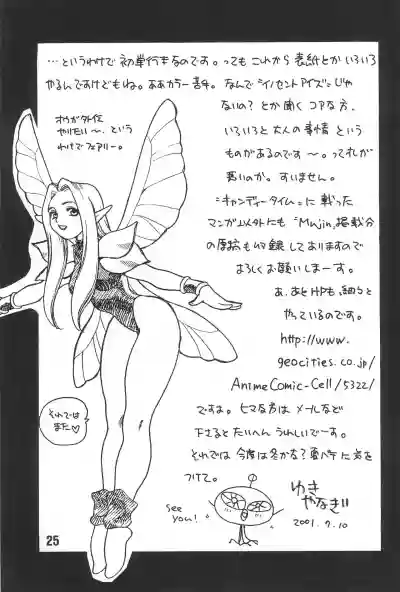 …というわけで 初単行本なのです。っても これから 表紙とか いろいろ
やるんですけどもね。ああカラー苦手。なんで“イノセントアイズ”じゃ
ないの？とか聞く コアな方、
いろいろと大人の事情 という
ものがあるのです 〜。ってそれが
悪いのか。すいません。
“キャンディータイム”に 載った
マンガ以外にも “Mujin”掲載分
の原稿も収録しておりますので
よろしくお願いしまーす。
あ、あとHPも、細々と
やっているのです。
http://www.
geocities.co.jp/
AnimeComic-Cell/5322/
ですよ。ヒマな方は メールなど
下さると たいへん うれしいでーす。
それでは 今度は冬かな？夏バテに気を
つけて。
オウガ外伝
やりたい〜、という
わけでフェアリー。
それでは
また♡
see
you!
ゆき
やなぎ
2001.7.10
25